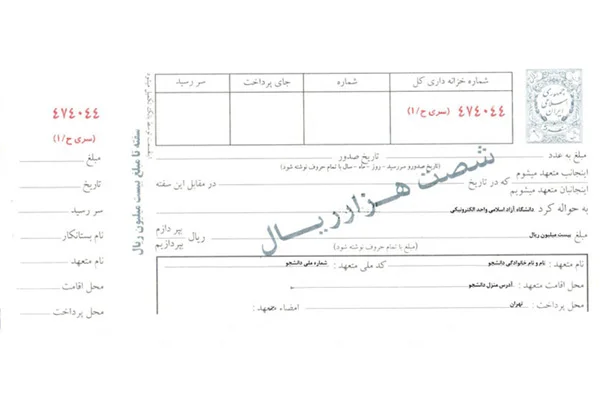 شماره خزانه داری کل
شماره
جای پرداخت
سر رسید
٤٧٤٠٤٤
(سری ح/١)
جمهوری
اسلامی
ایران
مبلغ به عدد
تاریخ صدور
(تاریخ صدورو سررسید - روز - ماه - سال - با تمام حروف نوشته شود)
اینجانب متعهد میشوم
اینجانبان متعهد میشویم
که در تاریخ
در مقابل این سفته
به حواله کرد دانشگاه آزاد اسلامی واحد الکترونیکی
مبلغ بیست میلیون ریال
ریال
بپردازم
بپردازیم
(مبلغ با تمام حروف نوشته شود)
شصت هزار ریال
نام متعهد : نام و نام خانوادگی دانشجو
کد ملی متعهد : شماره ملی دانشجو
محل اقامت متعهد : آدرس منزل دانشجو
محل پرداخت : تهران
امضاء متعهد :
سفته تا مبلغ بیست میلیون ریال
٤٧٤٠٤٤
(سری ح/١)
مبلغ
تاریخ
سر رسید
نام بستانکار
نام متعهد
محل اقامت
محل پرداخت